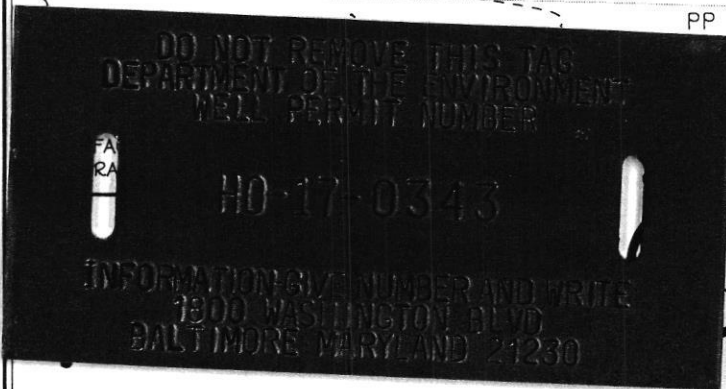 PP
DO NOT REMOVE THIS TAG
DEPARTMENT OF THE ENVIRONMENT
WELL PERMIT NUMBER
FA
RA
HO-17-0343
INFORMATION-GIVE NUMBER AND WRITE
1800 WASHINGTON BLVD
BALTIMORE MARYLAND 21230